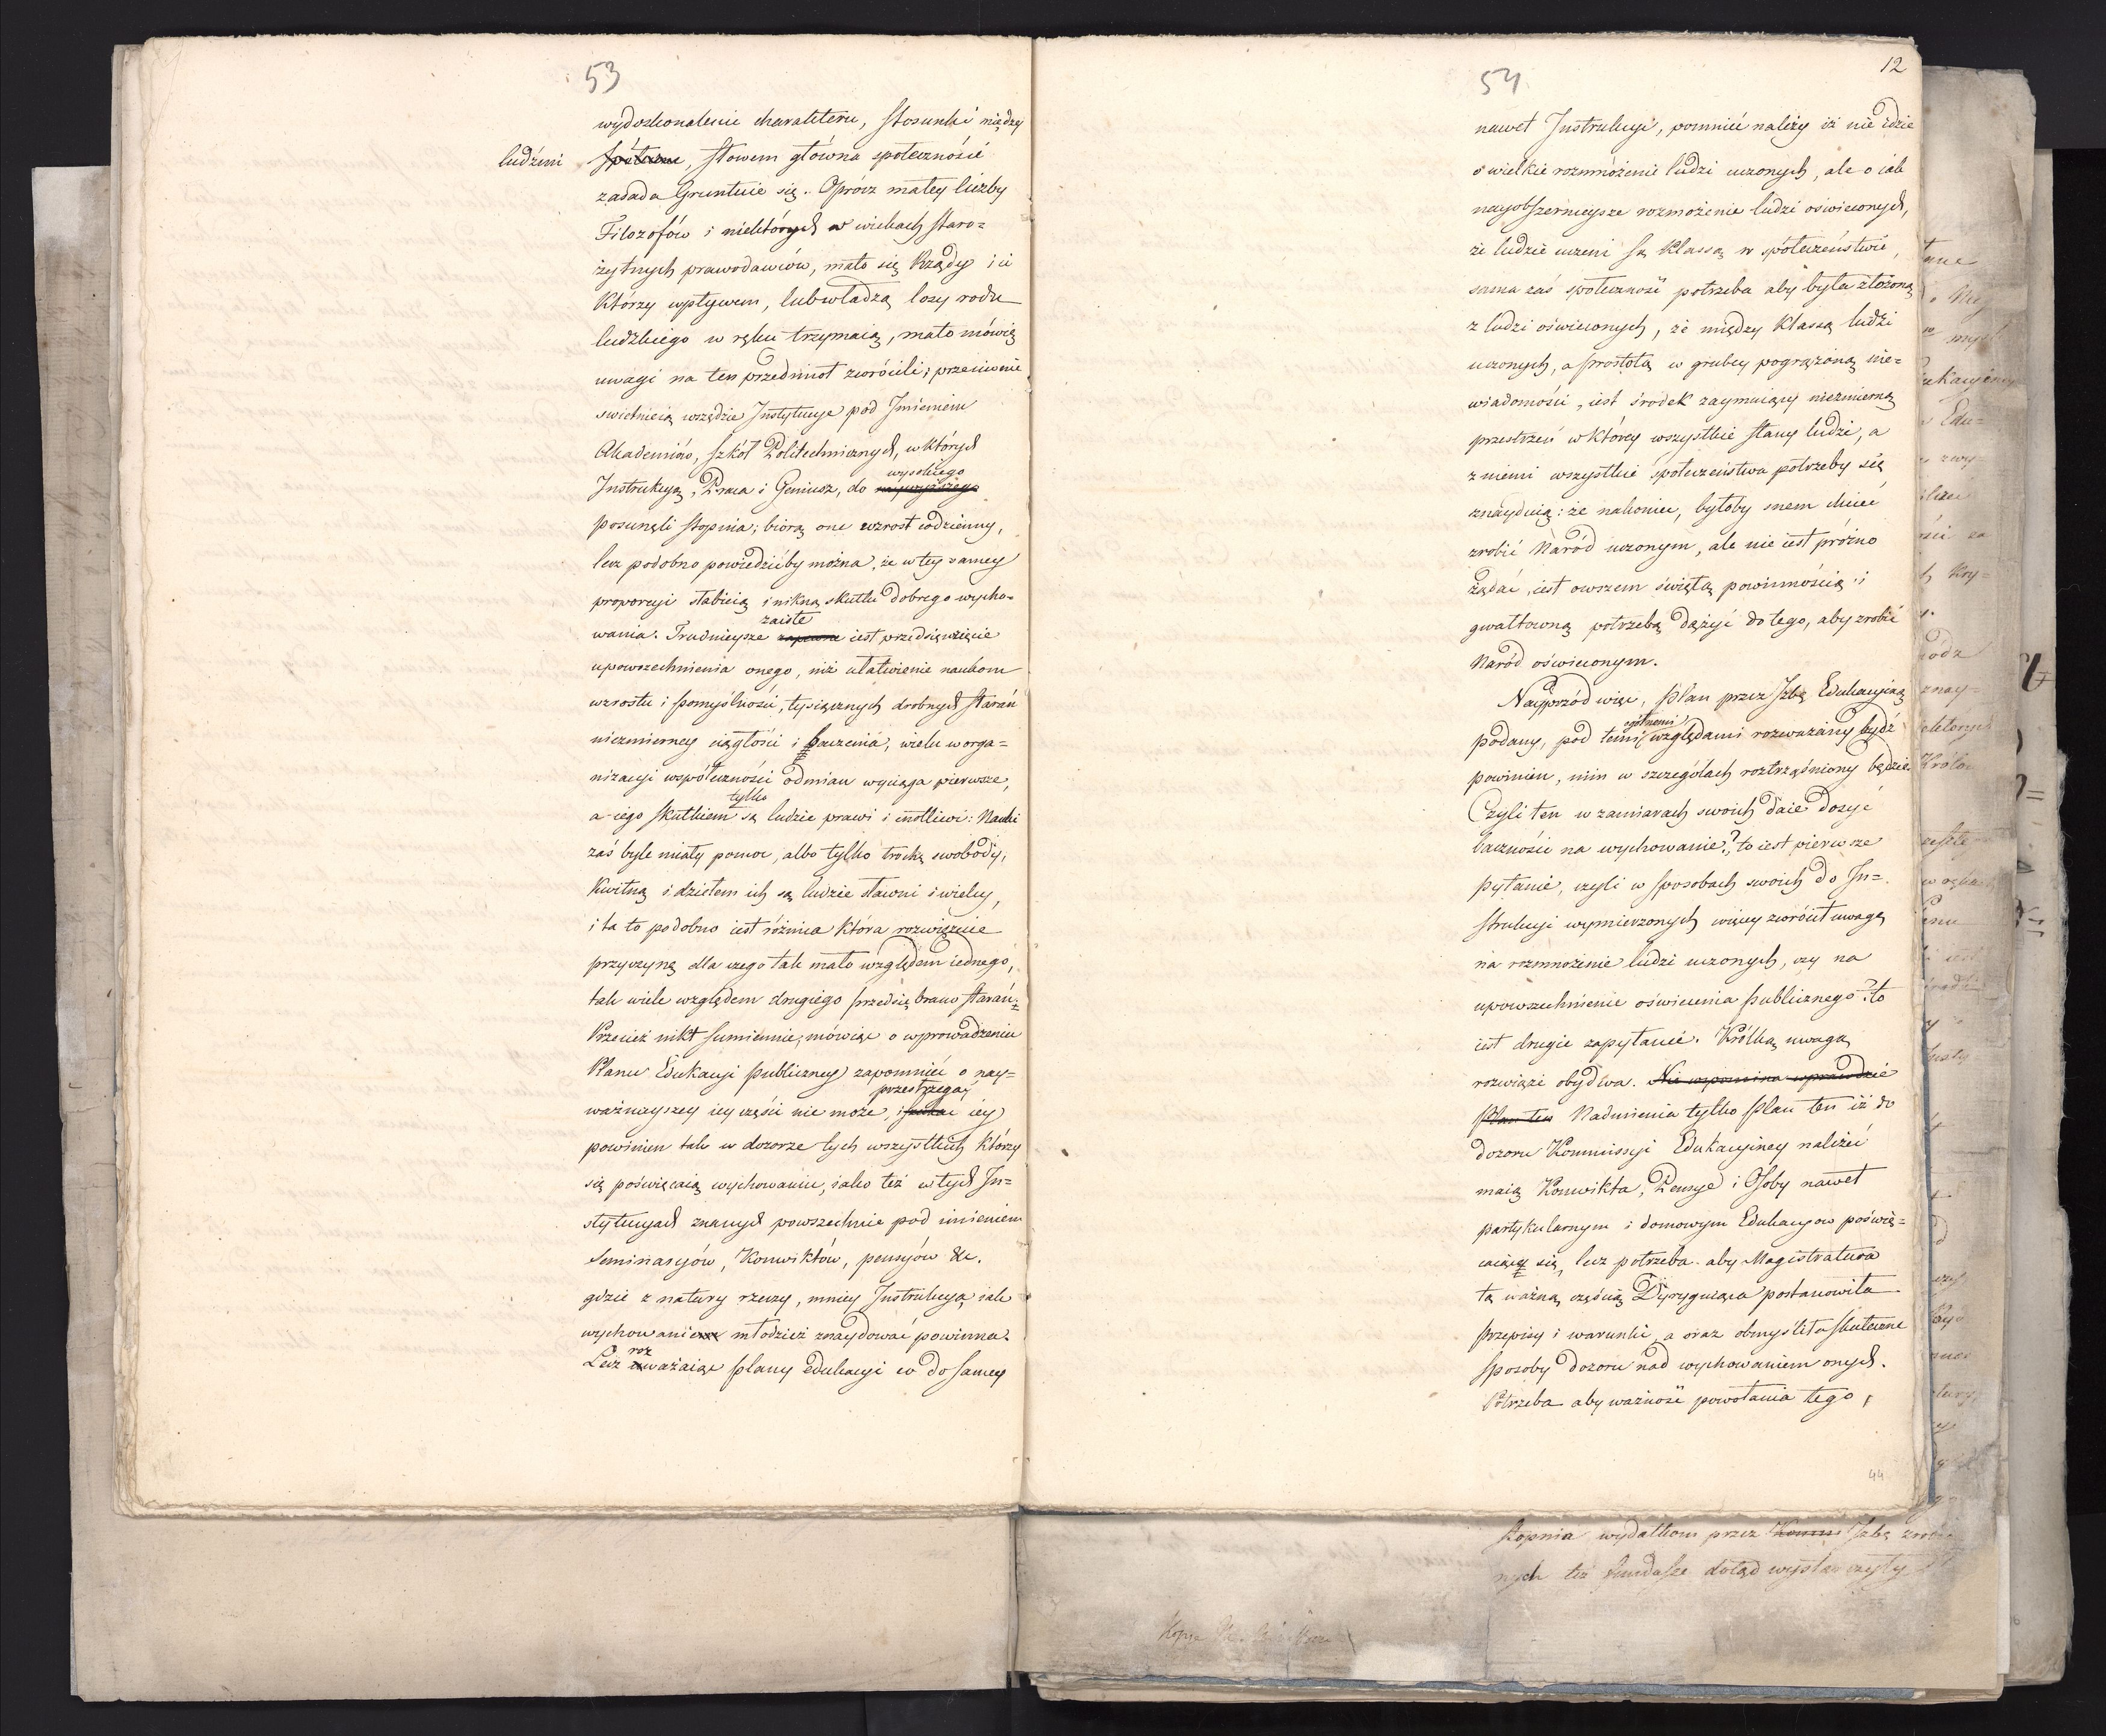 53
wydoskonalenie charakteru, stosunki między
ludźmi spółeczne, słowem główna społeczności
zasada Gruntuie się. Oprócz małey liczby
Filozofów i niektórych w wiekach staro=
żytnych prawodawców, mało się Rządy i ci
Którzy wpływem, lub władzą losy rodu
ludzkiego w ręku trzymaią, mało mówię
uwagi na ten przedmiot zwrócili; przeciwnie
swietnieią wszędzie Instytucye pod Jmieniem
Akademiów, szkół Politechnicznych, w których
wysokiego
Instrukcyą, Praca i Geniusz, do naywyższego
posunęli stopnia; biorą one wzrost codzienny,
lecz podobno powiedziećby można, że w tey samey
proporcyi słabieią i nikną skutki dobrego wycho=
zaiste
wania. Trudnieysze zapewne iest przedsięwzięcie
upowszechnienia onego, niż ułatwienie naukom
wzrostu i pomyślności, tysiącznych drobnych starań
niezmierney ciągłości i baczenia, wielu w orga=
nizacyi współeczności odmian wyciąga pierwsze,
tylko
a iego skutkiem są ludzie prawi i cnotliwi: Nauki
zaś byle miały pomoc, albo tylko trochę swobody,
Kwitną i dziełem ich są ludzie sławni i wielcy,
i ta to podobno iest różnica która rozwiązuie
przyczynę dla czego tak mało względem iednego,
tak wiele względem drugiego przedsiębrano starań.
Przecież nikt sumiennie, mówiąc o wprowadzeniu
Planu Edukacyi publiczney zapomnieć o nay=
przestrzegać
ważnieyszey iey części nie może, i szukać iey
powinien tak w dozorze tych wszystkich którzy
się poświęcaią wychowaniu, iako też w tych In=
stytucyach znanych powszechnie pod imieniem
Seminaryów, Konwiktów, pensyów &c.
gdzie z natury rzeczy, mniey Instrukcyą iak
wychowanie młodzież znaydować powinna.
roz
Lecz uważaiąc plany edukacyi co do samey
54
12
nawet Instrukcyi, pomnieć należy iż nie idzie
o wielkie rozmnożenie ludzi uczonych, ale o iak
nayobszernieysze rozmożenie ludzi oświeconych,
że ludzie uczeni są klassą w społeczeństwie,
sama zaś społeczność potrzeba aby była złożoną
z ludzi oświeconych, że między klassą ludzi
uczonych, a prostotą w grubey pogrążoną nie=
wiadomości, iest środek zaymuiący niezmierną
przestrzeń w którey wszystkie stany ludzi, a
z niemi wszystkie społeczeństwa potrzeby się
znayduią: że nakoniec, byłoby snem chcieć
zrobić Naród uczonym, ale nie iest próżno
żądać, iest owszem świętą powinnością i
gwałtowną potrzebą dążyć do tego, aby zrobić
Naród oświeconym.
Nayprzód więc, plan przez Jzbę Edukacyiną
ogólnemi
podany, pod temi względami rozważany bydź
powinien, nim w szczegółach roztrząśniony będzie.
Czyli ten w zamiarach swoich daie dosyć
baczności na wychowanie? to iest pierwsze
pytanie, czyli w sposobach swoich do In=
strukcyi wymierzonych więcey zwrócił uwagę
na rozmnożenie ludzi uczonych, czy na
upowszechnienie oświecenia publicznego? to
iest drugie zapytanie. Krótka uwaga
rozwiąże obydwa. Nie wspomina wprawdzie
Plan ten Nadmienia tylko plan ten iż do
dozoru Kommissyi Edukacyiney należeć
maią Konwikta, Pensye i Osoby nawet
partykularnym i domowym Edukacyom poświę=
caiące się, lecz potrzeba aby Magistratura
tą ważną częścią Dyryguiąca postanowiła
przepisy i warunki, a oraz obmyśliła skuteczne
sposoby dozoru nad wychowaniem onych.
Potrzeba aby ważność powołania tego,
44
stopnia wydatkom przez Jzbę
nych też fundusze dotąd wystarczyły